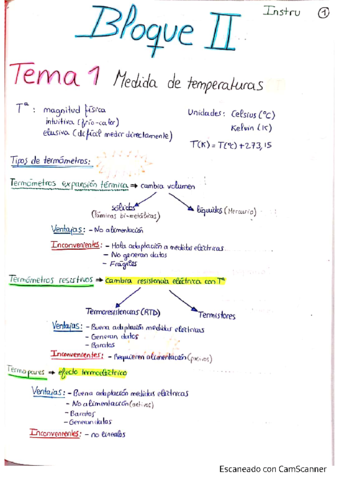 Instru 1
Bloque II
Tema 1 Medida de temperaturas
Tª : magnitud física
intuitiva (frío-calor)
elusiva (difícil medir directamente)
Unidades: Celsius (ºC)
Kelvin (K)
T(K) = T(ºC) + 273,15
Tipos de termómetros:
Termómetros expansión térmica → cambia volumen
sólidos
(láminas bi-metálicas)
líquidos (Mercurio)
Ventajas: - No alimentación
Inconvenientes: - Mala adaptación a medidas eléctricas
- No generan datos
- Frágiles
Termómetros resistivos → cambia resistencia eléctrica con Tª
Termoresistencias (RTD)
Termistores
Ventajas: - Buena adaptación medidas eléctricas
- Generan datos
- Baratos
Inconvenientes: - Requieren alimentación
Termopares → efecto termoeléctrico
Ventajas: - Buena adaptación medidas eléctricas
- No alimentación
- Baratos
- Generan datos
Inconvenientes: - no lineales
Escaneado con CamScanner